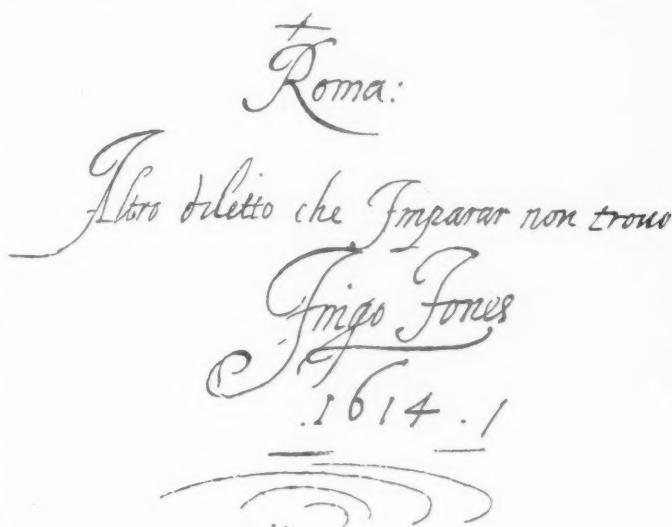 Roma:
Altro diletto che Imparar non trouo
Inigo Jones
.1614.1